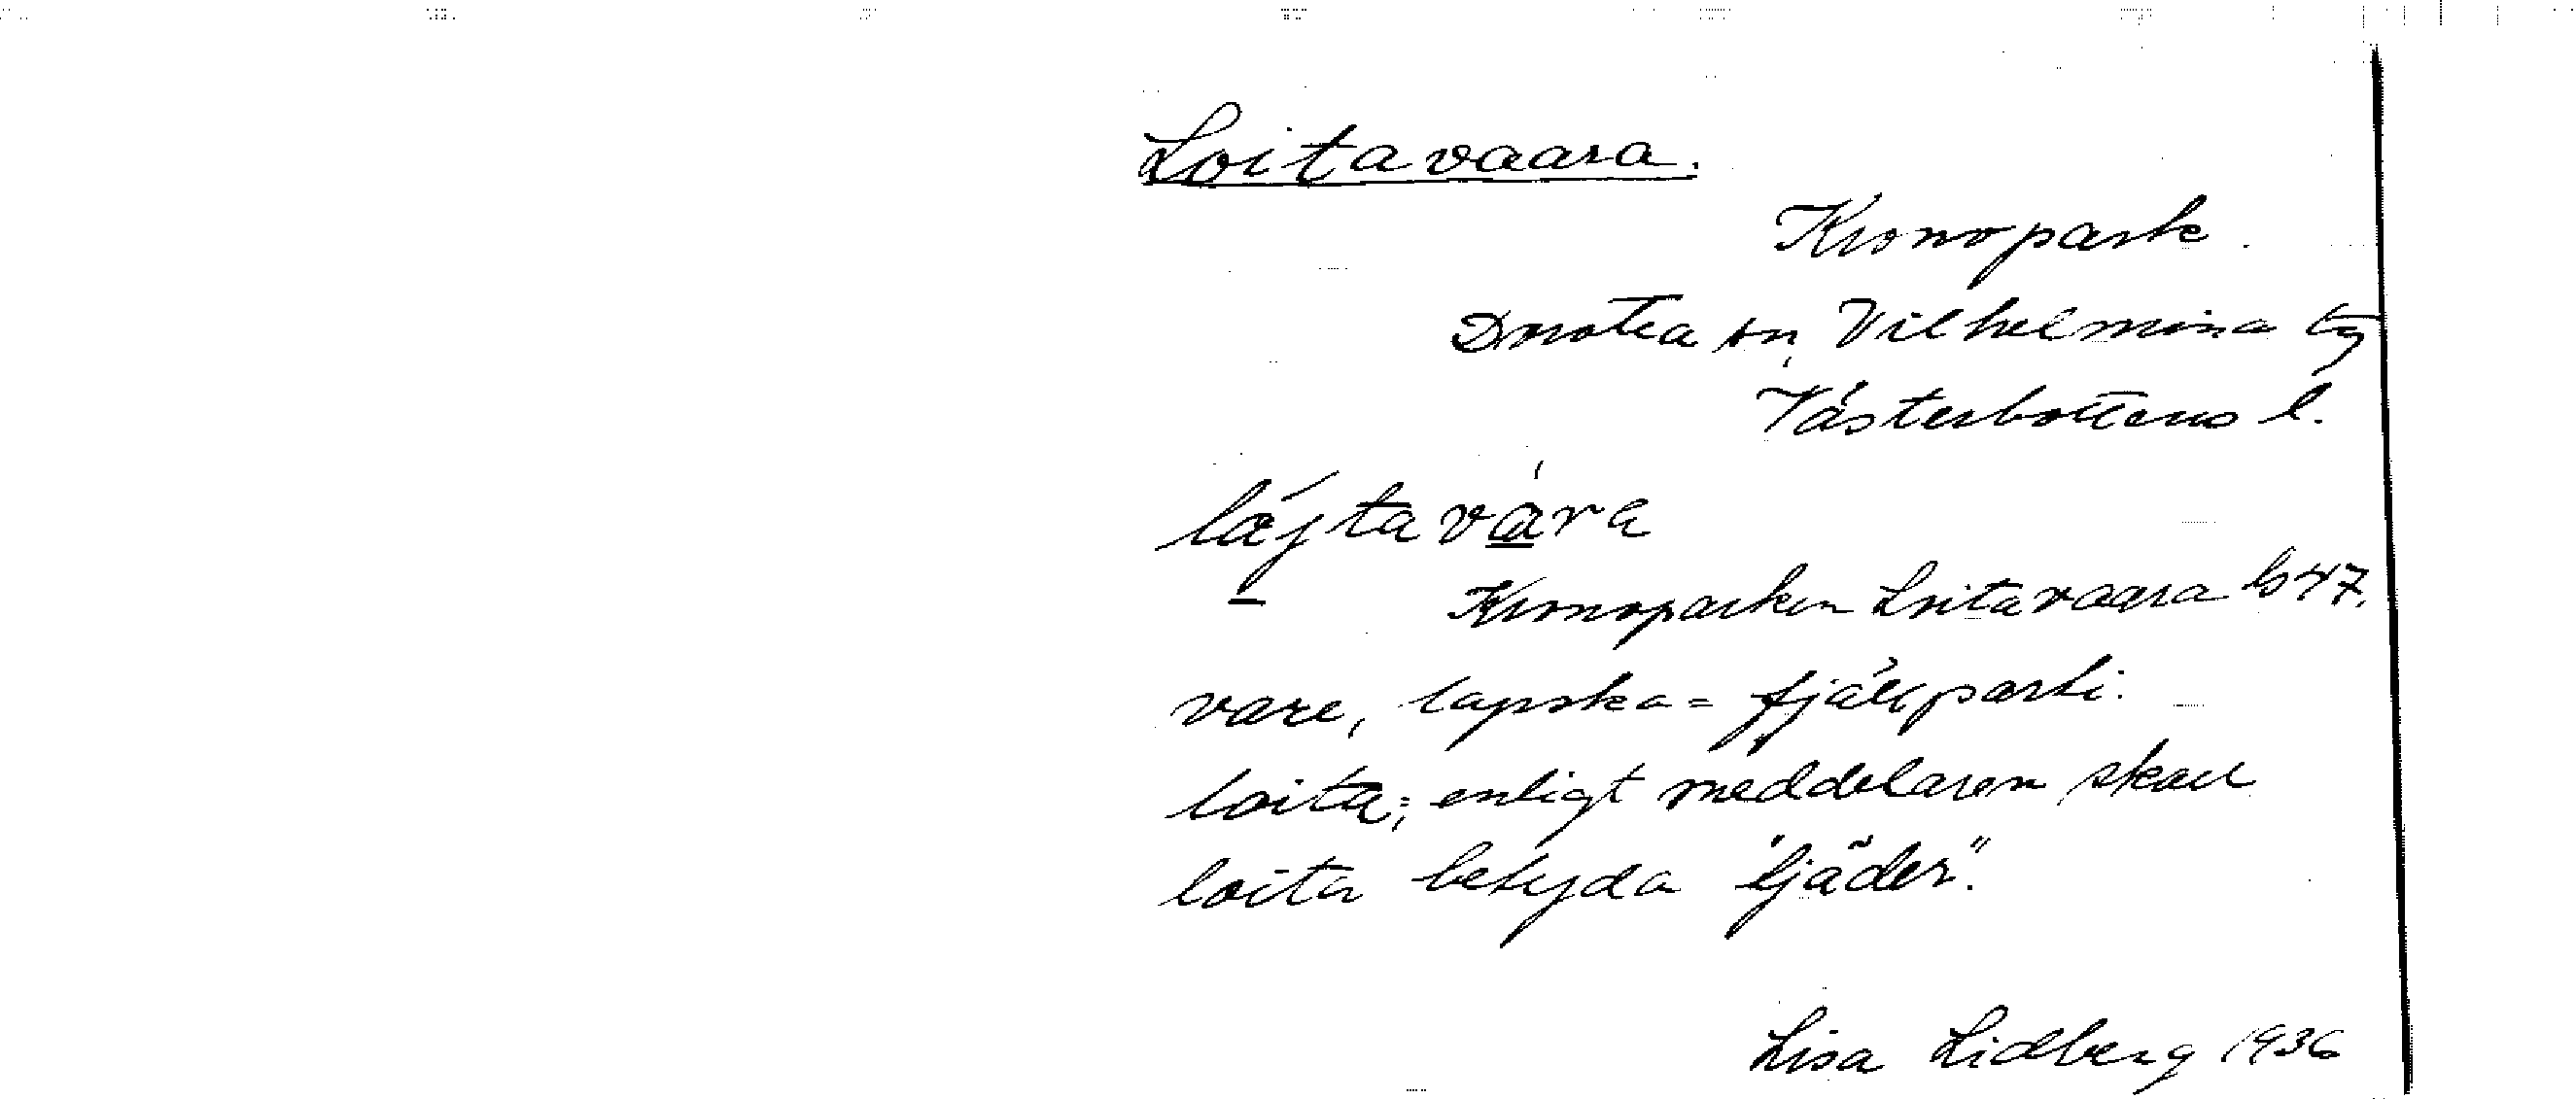 Loitavaara.
Kronopark.
Dorotea sn, Vilhelmina tg
Västerbottens l.
låjtavára
Kronoparken Loitavaara b 47.
vare, lapska = fjällparti.
loita; enligt meddelaren skall
loita betyda "tjäder".
Lisa Lidberg 1936